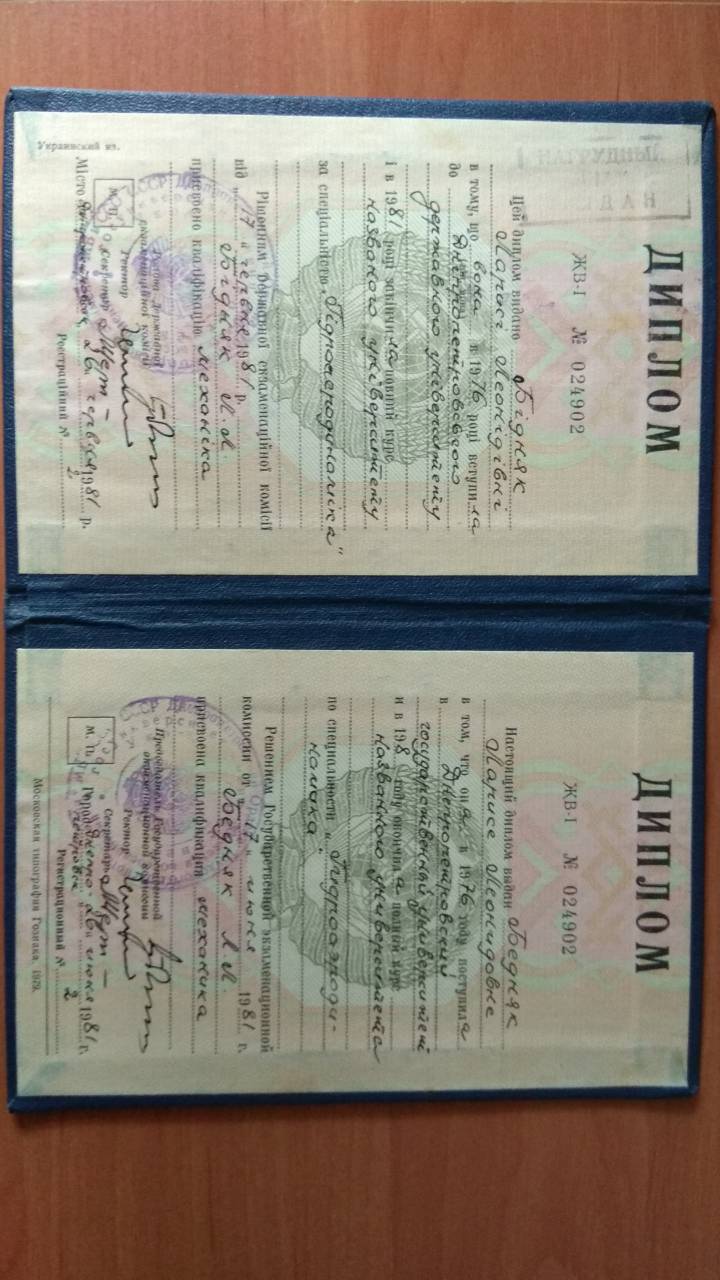 ДИПЛОМ
ЖВ-І № 024902
Цей диплом видано Бідняк
Ларисі Леонідівні
в тому, що вона в 1976 році вступила
до Дніпропетровського
державного університету
і в 1981 році закінчила повний курс
названого університету
за спеціальністю „Гідроаеродинаміка"
Рішенням Державної екзаменаційної комісії
від „17" червня 1981 р.
Бідняк Л.Л.
присвоєно кваліфікацію механіка
Голова Державної
екзаменаційної комісії
Ректор
Секретар
М.П.
Місто 26 червня 1981 р.
Реєстраційний № 2
Украинский яз.
ДИПЛОМ
ЖВ-I № 024902
Настоящий диплом выдан Бедняк
Ларисе Леонидовне
в том, что она в 1976 году поступила
в Днепропетровский
государственный университет
и в 198 году окончила полный курс
названного университета
по специальности „Гидроаэроди-
намика"
Решением Государственной экзаменационной
комиссии от „17" июня 1981 г.
Бедняк Л.Л.
присвоена квалификация механика
Председатель Государственной
экзаменационной комиссии
Ректор
Секретарь
М.П.
Город Днепропетровск 26 июня 1981 г.
Регистрационный № 2
Московская типография Гознака. 1979.